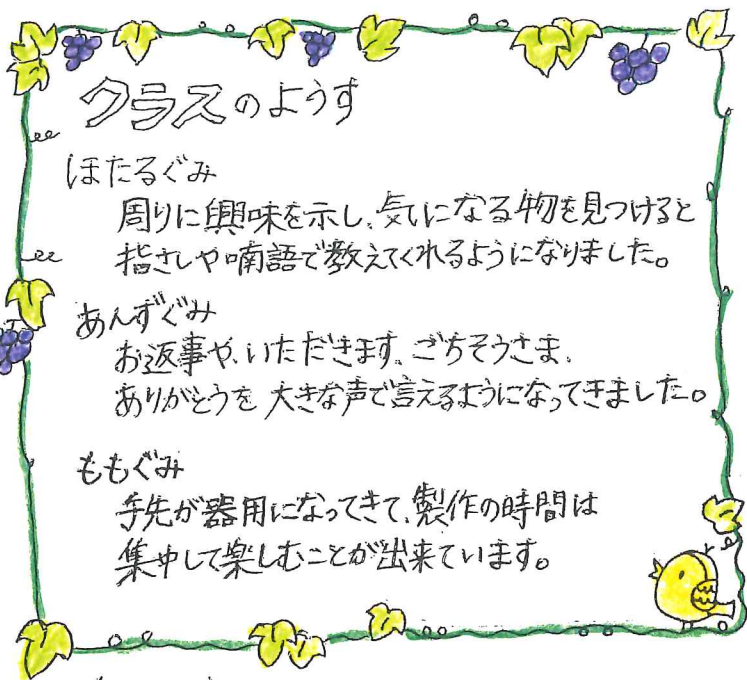 クラスのようす
ほたるぐみ
周りに興味を示し、気になる物を見つけると
指さしや喃語で教えてくれるようになりました。
あんずぐみ
お返事や、いただきます、ごちそうさま、
ありがとうを大きな声で言えるようになってきました。
ももぐみ
手先が器用になってきて、製作の時間は
集中して楽しむことが出来ています。